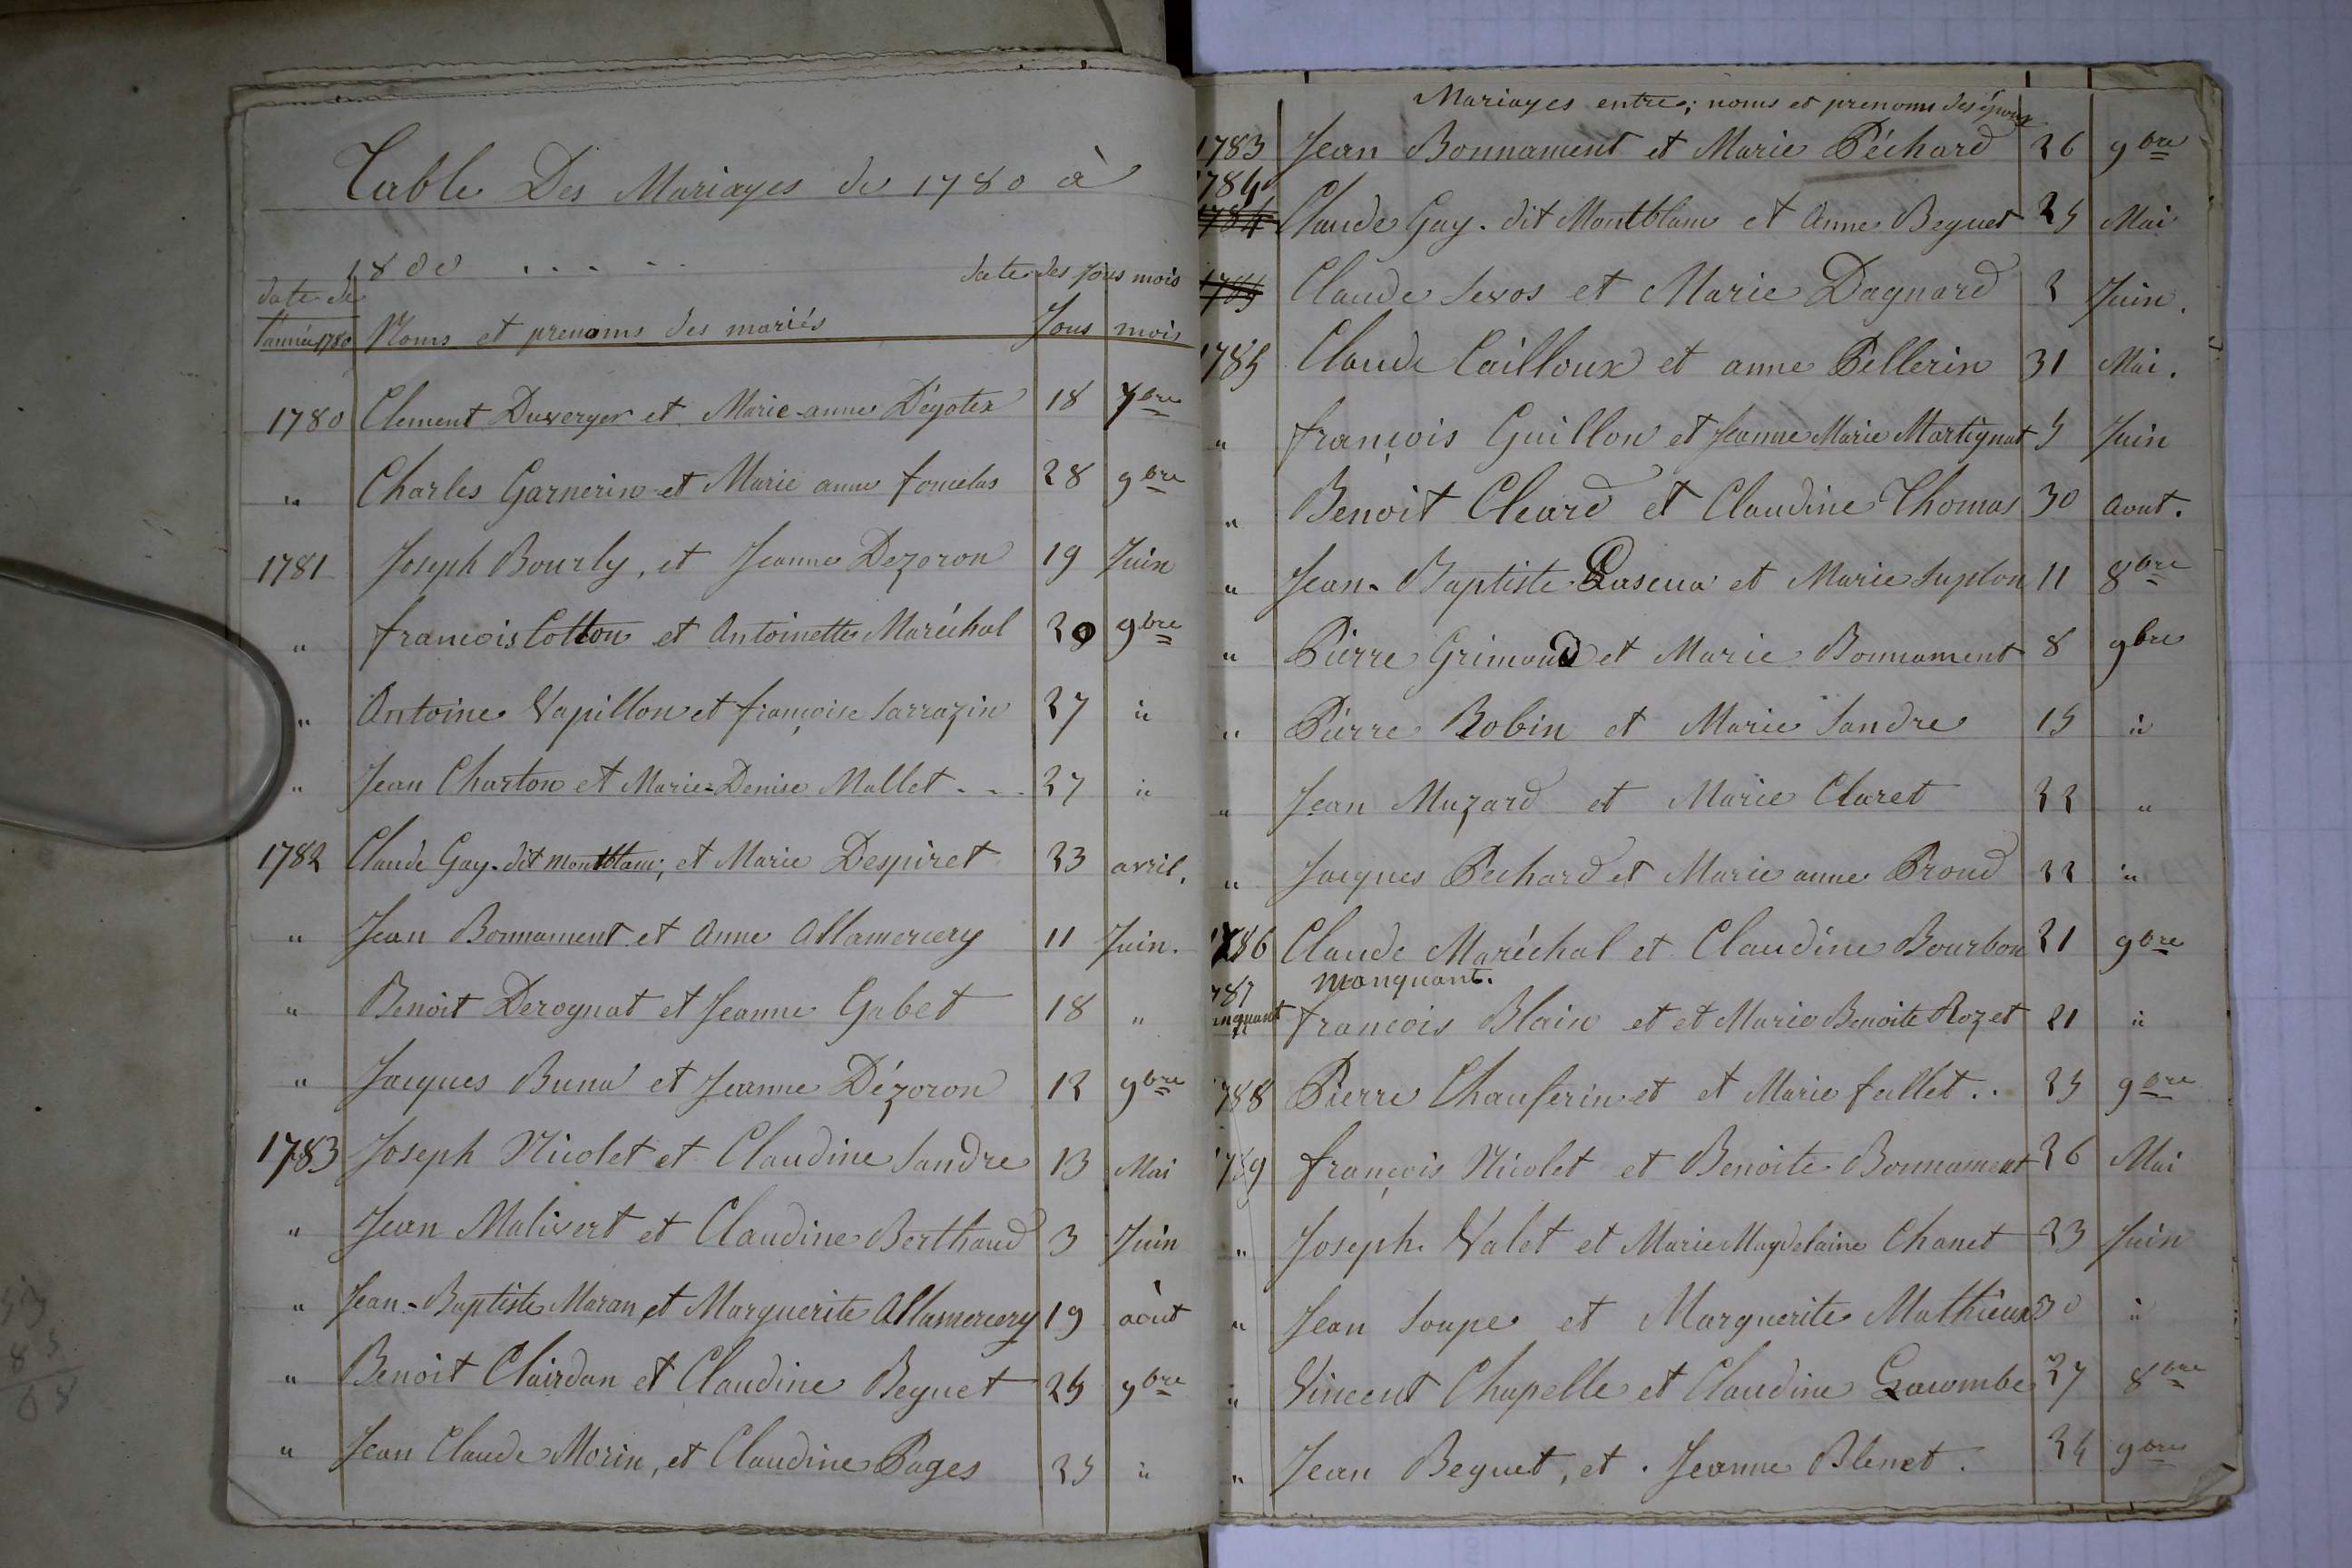 Table Des Mariages de 1780 à
1800 . . . . .
date des jous mois
date de
l'année 1780 Noms et prenoms des mariés Jous mois
1780 Clement Duverger et Marie-anne Dégotex 18 7bre
" Charles Garnerin et Marie anne 28 9bre
1781 Joseph Bourly, et Jeanne Dezoron 19 Juin
" francois Cotton et Antoinette Maréchal 20 9bre
" Antoine Vapillon et françoise Sarrazin 27 "
" Jean Charton et Marie-Denise Mallet . . . 27 "
1782 Claude Gay. dit Montblanc, et Marie Despiret 23 avril.
" Jean Bonnament et Anne Allamercery 11 Juin.
" Benoit Derognat et Jeanne Gabet 18 "
" Jacques Buna et Jeanne Dézoron 12 9bre
1783 Joseph Nicolet et Claudine Sandre 13 Mai
" Jean Malivert et Claudine Berthaud 3 Juin
" Jean-Baptiste Maran et Marguerite Allamercery 19 aout
" Benoit Clairdan et Claudine Beguet 25 9bre
" Jean Claude Morin, et Claudine Pages 25 "
Mariages entre; noms et prenoms des époux
1783 Jean Bonnament et Marie Péchard 26 9bre
1784
1784 Claude Gay. dit Montblanc et Anne Beguet 25 Mai
Claude Sevos et Marie Dagnard 2 Juin.
1785 Claude Cailloux et anne Pellerin 31 Mai.
" françois Guillon et Jeanne Marie Martignat 5 Juin
" Benoit Cleard et Claudine Thomas 30 Aout.
" Jean-Baptiste et Marie Suplon 11 8bre
" Pierre Grimoud et Marie Bonnament 8 9bre
" Pierre Robin et Marie Sandre 15 "
" Jean Muzard et Marie Claret 22 "
" Jacques Pechard et Marie anne Proud 22 "
1786 Claude Maréchal et Claudine Bourbon 21 9bre
787 manquant.
manquant francois Blain et et Marie Benoite Rozet 21 "
788 Pierre Chauferin et et Marie fillet . . 25 9bre
789 françois Nicolet et Benoite Bonnament 26 Mai
" Joseph Valet et Marie Magdelaine Chanet 23 Juin
" Jean Soupe et Marguerite Mathieux 30 "
" Vincent Chapelle et Claudine Lacombe 27 8bre
" Jean Beguet, et . Jeanne Blenet . 24 9bre